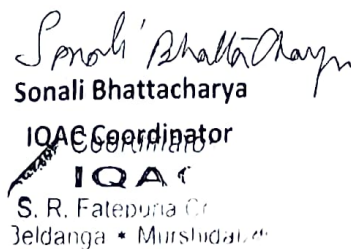 Sonali Bhattacharya
Sonali Bhattacharya
IQAC Coordinator
Coordinator
IQAC
S. R. Fatepuria
Beldanga * Murshidabad